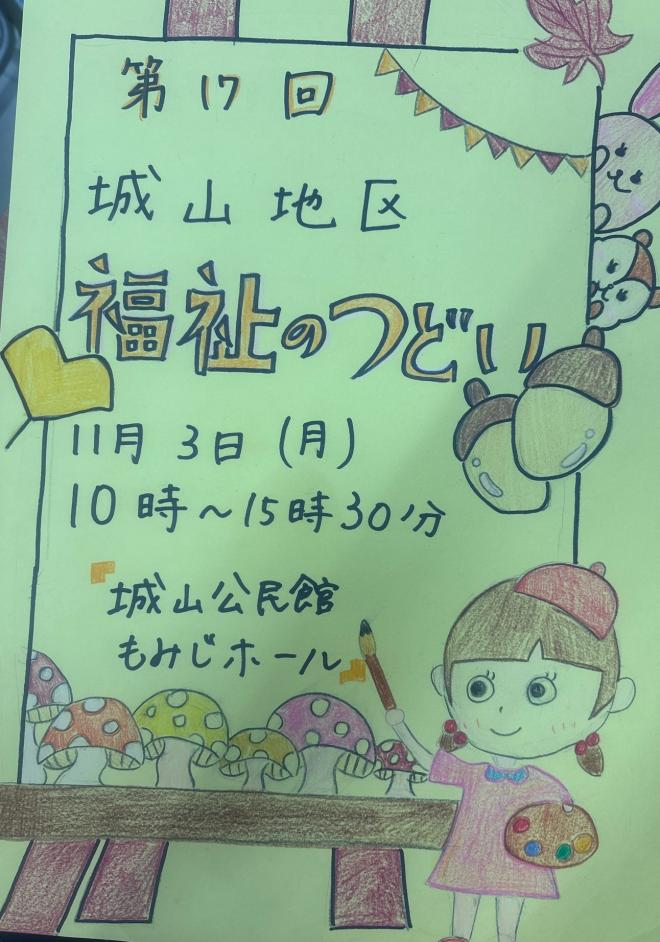 第17回
城山地区
福祉のつどい
11月3日(月)
10時～15時30分
城山公民館
もみじホール